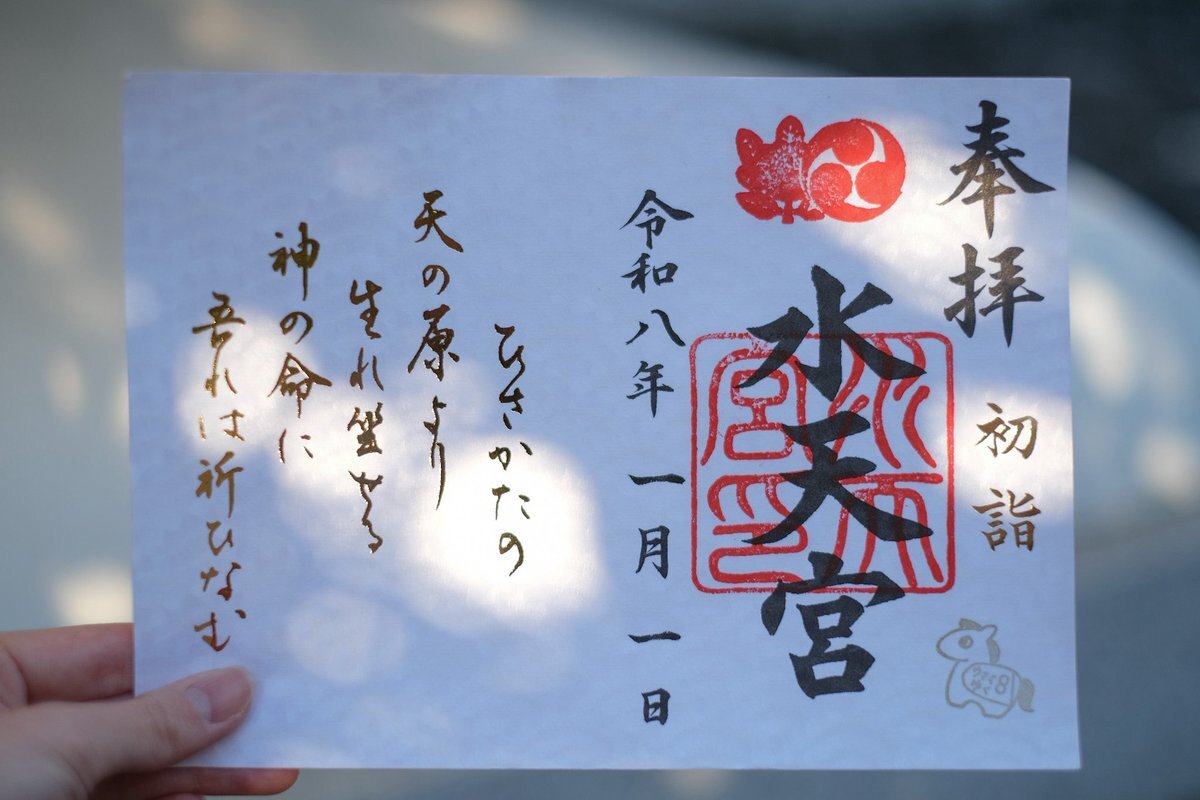 奉拝
初詣
水天宮
水天宮印
令和八年 一月 一日
ひさかたの
天の原より
生れ坐せる
神の命に
吾れは祈ひなむ